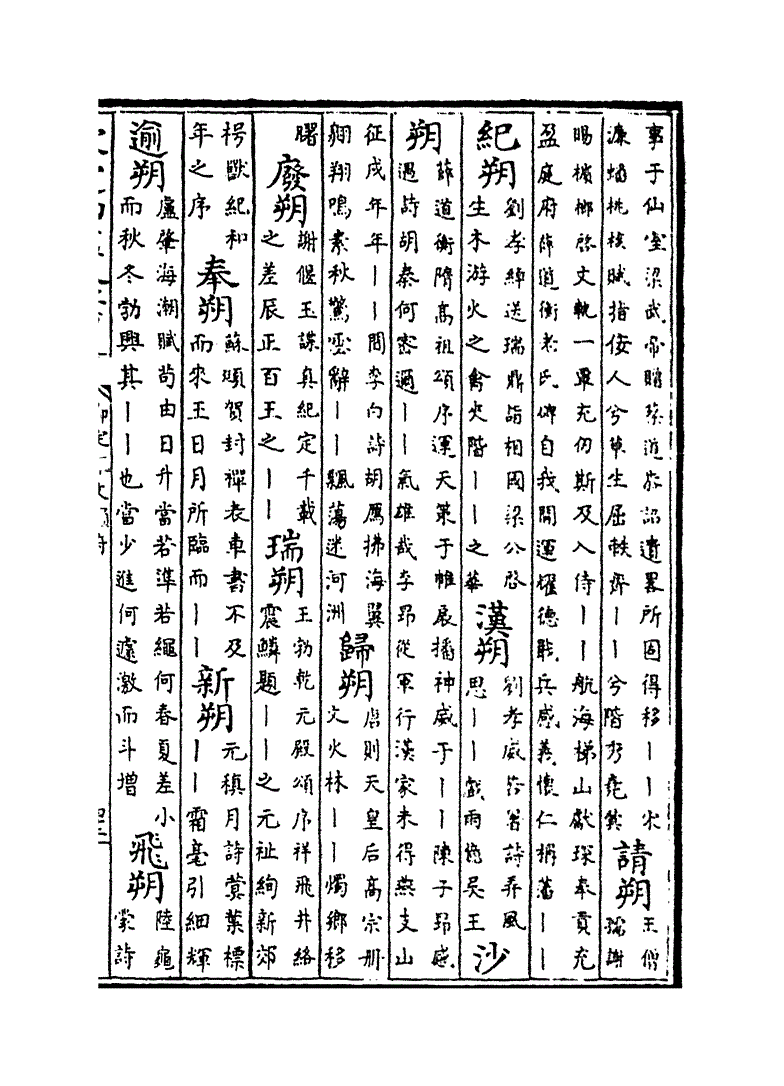 事于仙室梁武帝贈蔡道恭詔遺畧所固得移丨丨火
漆燭桃枝賦指佞人兮草生屈軼齊丨丨兮階乃蓂莢
請朔
王僧
孺謝
賜檳榔啓文軌一覃充仞斯及入侍丨丨航海梯山獻琛奉貢充
盈庭府薛道衡老氏碑自我開運耀德戢兵感義懷仁稱藩丨丨
紀朔
劉孝綽送瑞鼎詣相國梁公啓
生木游火之禽火階丨丨之華
漢朔
劉孝威苦暑詩弄風
思丨丨戲雨憶吳王
沙
朔
薛道衡隋高祖頌序運天策于帷扆播神威于丨丨陳子昂感
遇詩胡秦何密邇丨丨氣雄哉李昂從軍行漢家未得燕支山
征戍年年丨丨間李白詩胡鴈拂海翼
翱翔鳴素秋驚雲辭丨丨飄蕩迷河洲
歸朔
唐則天皇后高宗册
文火林丨丨燭鄉移
曙
廢朔
謝偃玉諜真紀定千載
之差辰正百王之丨丨
瑞朔
王勃乾元殿頌序祥飛井絡
震鱗題丨丨之元祉絢新郊
枵獸紀和
年之序
奉朔
蘇頲賀封禪表車書不及
而來王日月所臨而丨丨
新朔
元稹月詩蓂葉標
丨丨霜毫引細輝
逾朔
盧肇海潮賦茍由日升當若準若繩何春夏差小
而秋冬勃興其丨丨也當少進何遽激而斗增
飛朔
陸龜
蒙詩